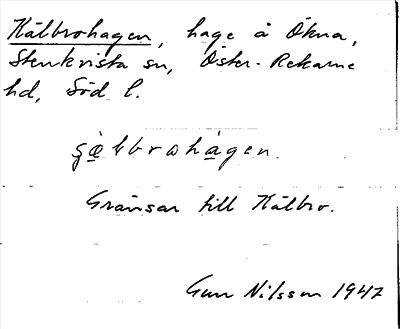 Kälbrohagen, hage å Ökna,
Stenkvista sn, Öster-Rekarne
hd, Söd l.
Gränsar till Kälbro.
Gun Nilsson 1947